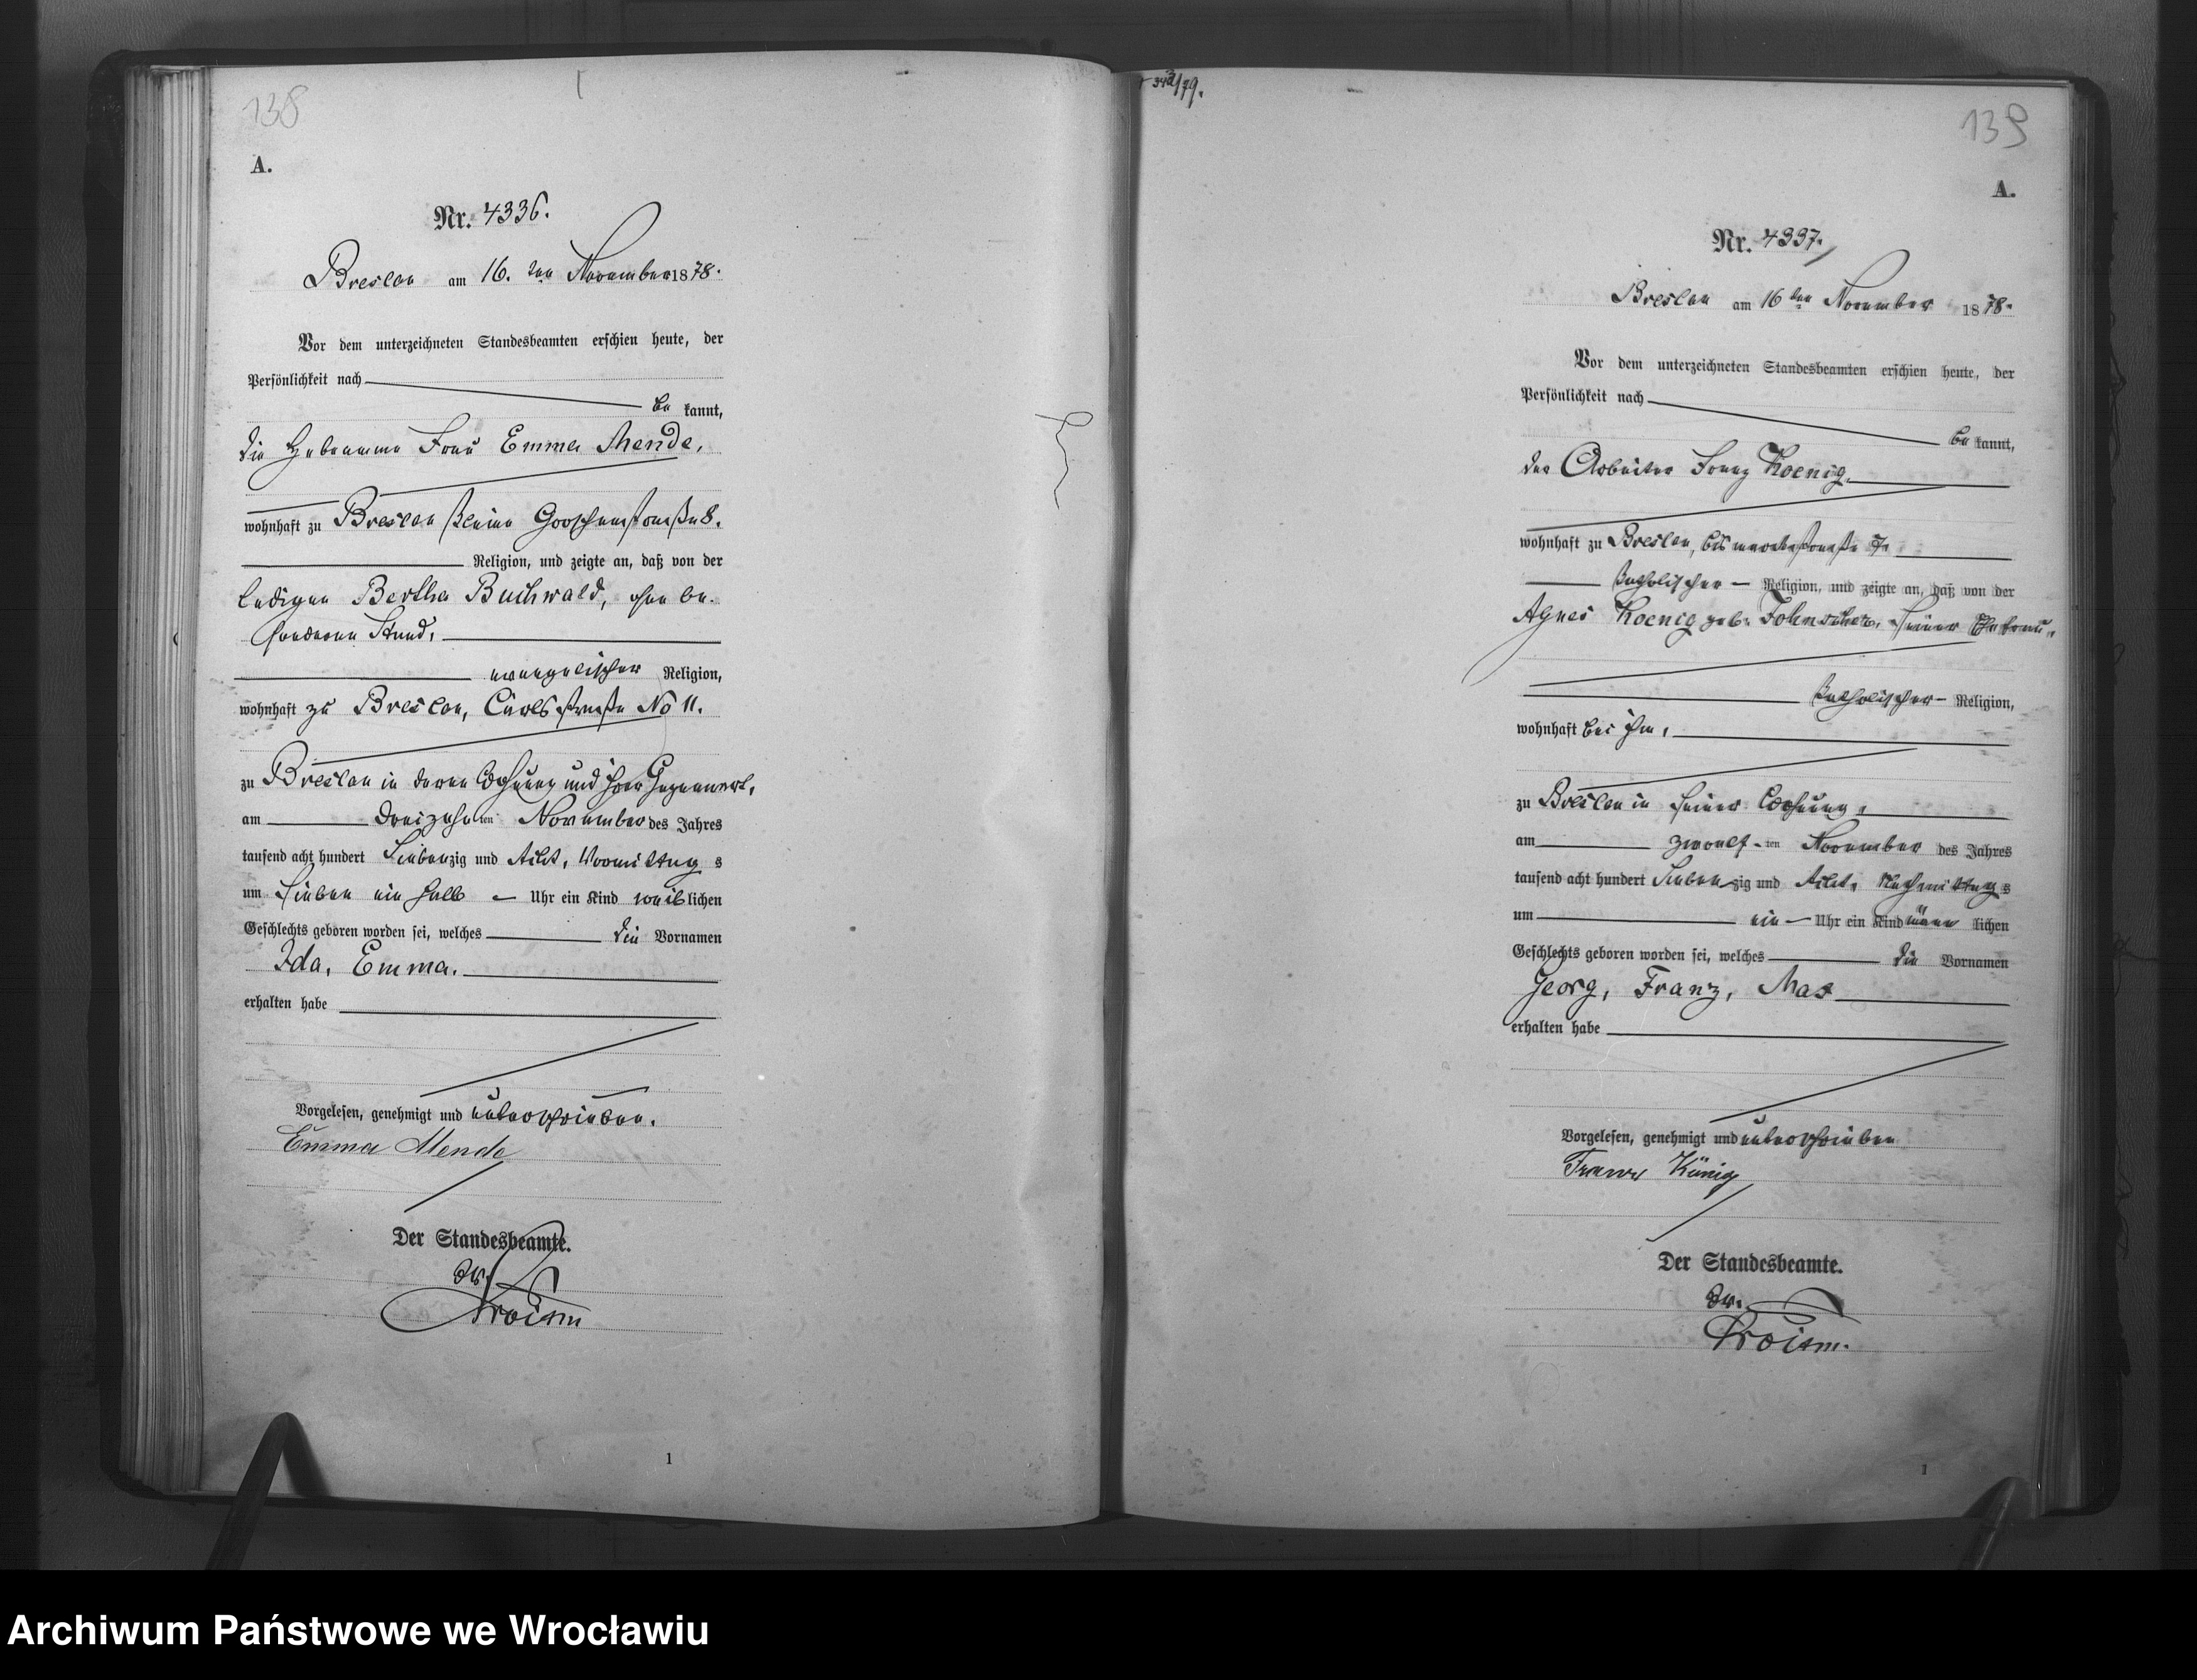 138
A.
Nr. 4336.
Breslau am 16. ten November 1878.
Vor dem unterzeichneten Standesbeamten erschien heute, der
Persönlichkeit nach
be kannt,
die Hebamme Frau Emma Mende,
wohnhaft zu Breslau kleine Groschenstraße 8.
Religion, und zeigte an, daß von der
ledigen Bertha Buchwald, ohne be-
sonderen Stand,
evangelischer Religion,
wohnhaft zu Breslau, Carlsstraße No 11.
zu Breslau in deren Wohnung und ihrer Gegenwart,
am dreizehn ten November des Jahres
tausend acht hundert siebenzig und acht, Vormittag s
um sieben ein halb Uhr ein Kind weiblichen
Geschlechts geboren worden sei, welches die Vornamen
Ida, Emma.
erhalten habe
Vorgelesen, genehmigt und unterschrieben.
Emma Mende
Der Standesbeamte.
1
139
A.
Nr. 4337.
Breslau am 16 ten November 1878.
Vor dem unterzeichneten Standesbeamten erschien heute, der
Persönlichkeit nach
be kannt,
der Arbeiter Franz Koenig
wohnhaft zu Breslau,
katholischer Religion, und zeigte an, daß von der
Agnes Koenig geb. seiner Ehefrau,
katholischer Religion,
wohnhaft bei ihm,
zu Breslau in seiner Wohnung,
am zwoelf ten November des Jahres
tausend acht hundert siebenzig und acht, Nachmittag s
um ein Uhr ein Kind männ lichen
Geschlechts geboren worden sei, welches die Vornamen
Georg, Franz, Max
erhalten habe
Vorgelesen, genehmigt und unterschrieben
König
Der Standesbeamte.
1
Archiwum Państwowe we Wrocławiu